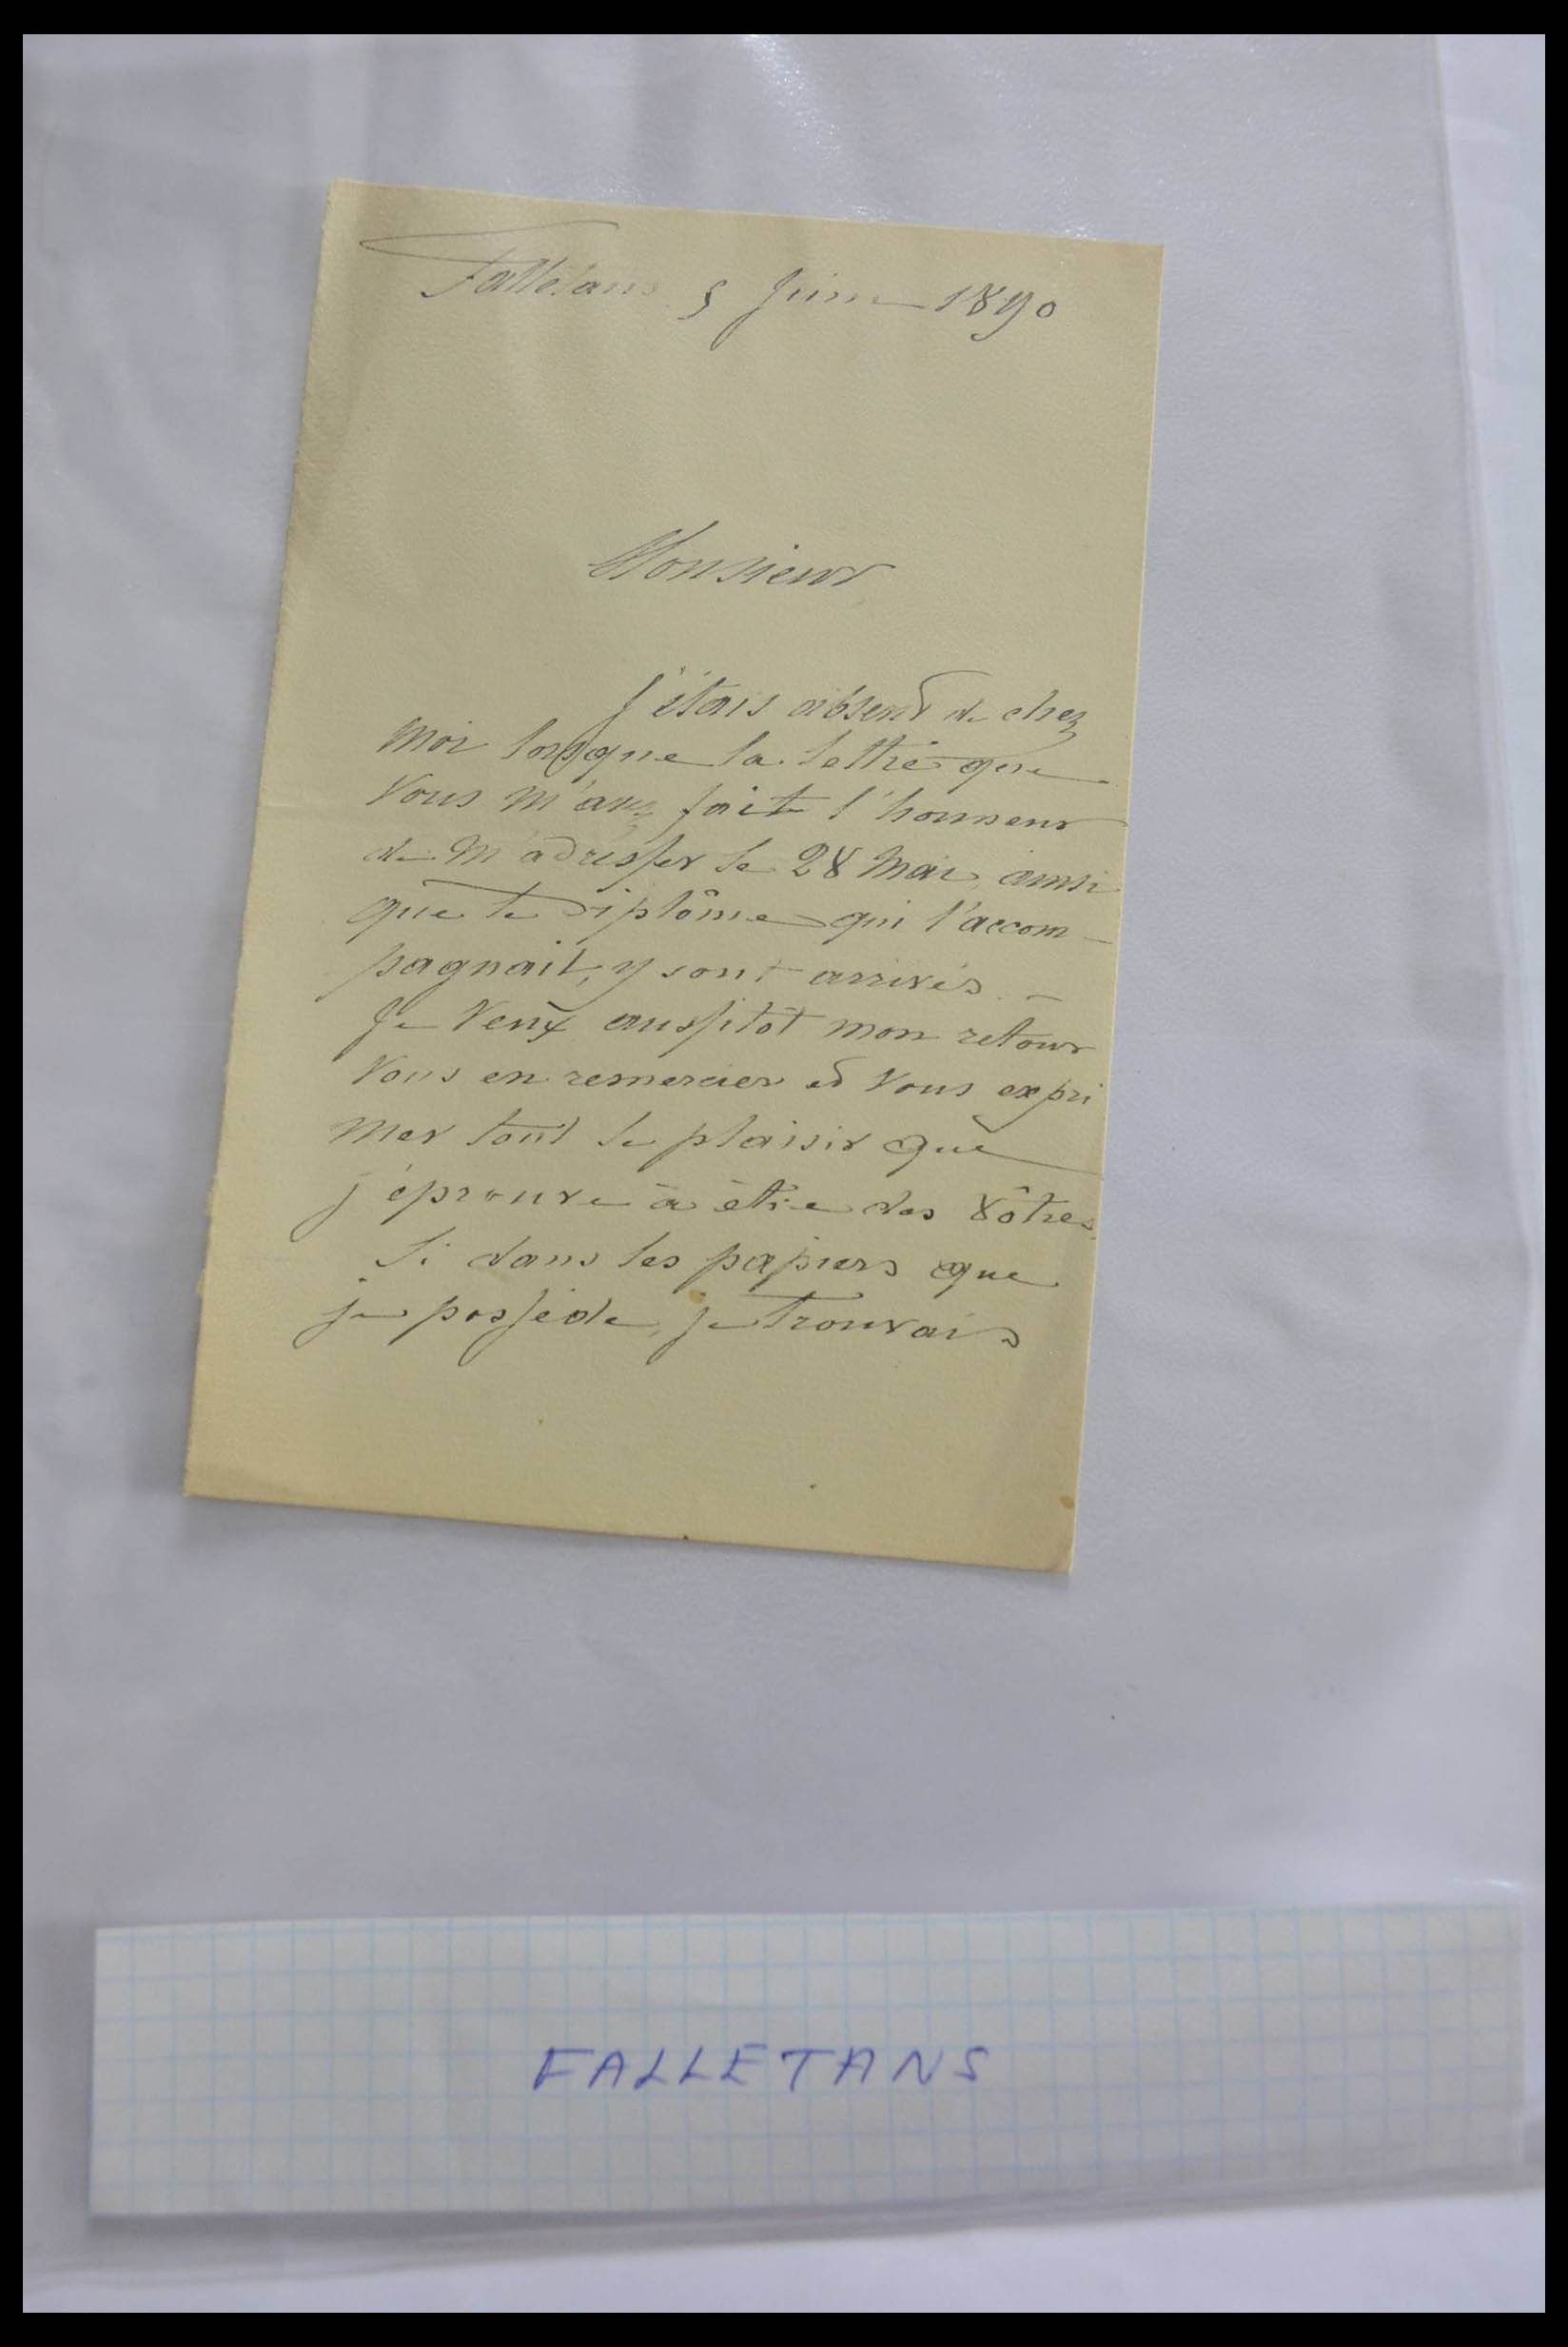 Falletans 5 Juin 1890
Monsieur
J'étais absent de chez
moi lorsque la lettre que
vous m'avez fait l'honneur
de m'adresser le 28 Mai, ainsi
que le diplôme qui l'accom-
pagnait, y sont arrivés. -
Je veux aussitôt mon retour
vous en remercier et vous expri
mer tout le plaisir que
j'éprouve à être des vôtres.
Si dans les papiers que
je possède, je trouvais
FALLETANS